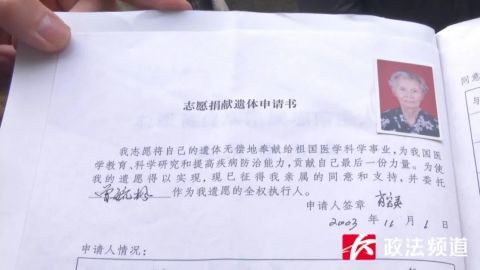 志愿捐献遗体申请书
我志愿将自己的遗体无偿地奉献给祖国医学科学事业，为我国医
学教育，科学研究和提高疾病防治能力，贡献自己最后一份力量。为使
我的遗愿得以实现，现已征得我亲属的同意和支持，并委托
作为我遗愿的全权执行人。
申请人签章
2003 年 11 月 6 日
申请人情况：
同意
与
政法频道